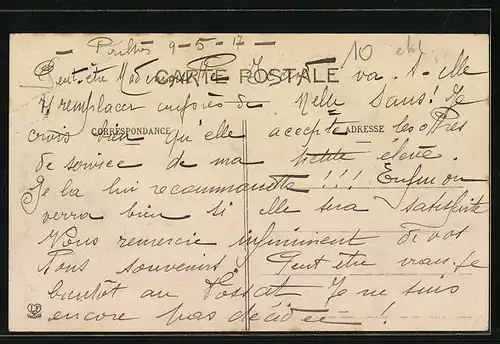 9-5-17
10
CARTE POSTALE
Peut-être Mademoiselle va-t-elle
remplacer auprès de Melle Sans! Je
CORRESPONDANCE
ADRESSE
crois bien qu'elle accepte les offres
de service de ma petite élève.
Je la lui recommandette!!! Enfin on
verra bien si elle sera satisfaite
Vous remercie infiniment de vos
bons souvenirs Peut être irai-je
bientôt au Je ne suis
encore pas décidée!